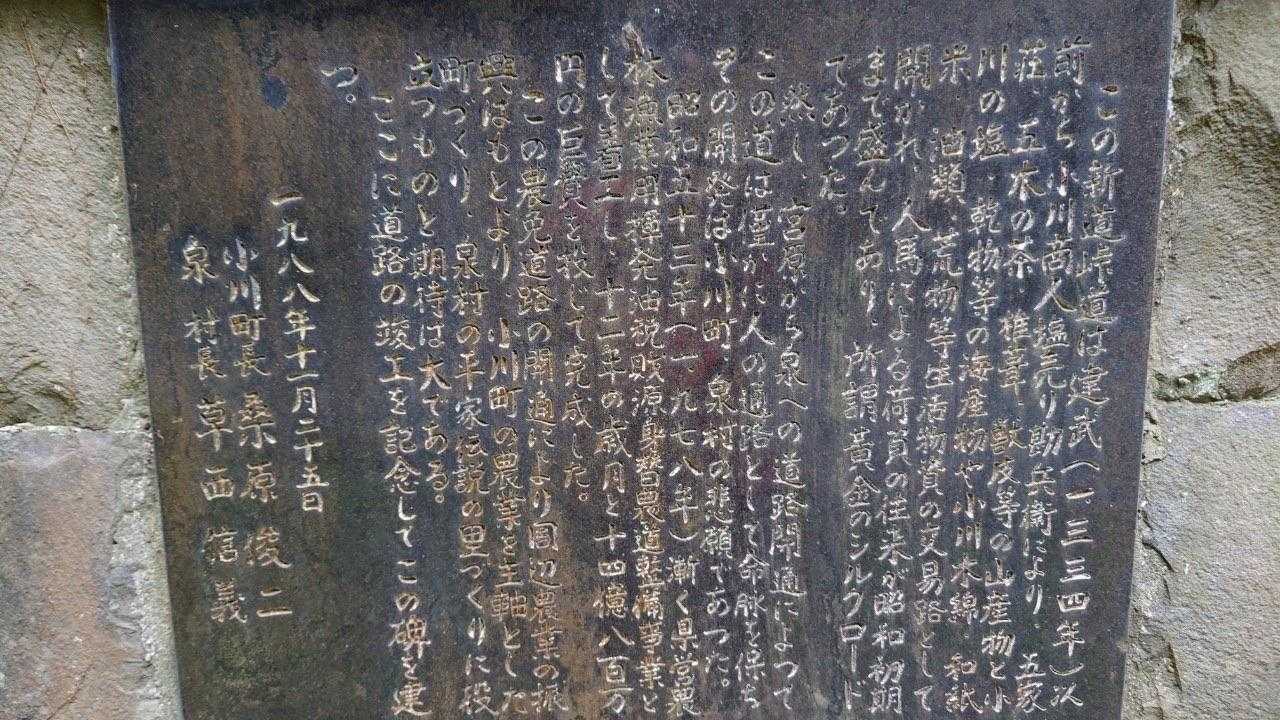 この新道峠道は建武(一三三四年)以
前から小川商人塩売り勘兵衛により、五家
荘、五木の茶、椎茸、獣皮等の山産物と小
川の塩、乾物等の海産物や小川木綿、和紙
米、油類、荒物等生活物資の交易路として
開かれ、人馬による荷負の往来が昭和初期
まで盛んであり、所謂黄金のシルクロード
であつた。
然し、宮原から泉への道路開通によつて
この道は僅かに人の通路として命脈を保ち
その開発は小川町、泉村の悲願であつた。
昭和五十三年(一九七八年)漸く県営農
林漁業用揮発油税財源身替農道整備事業と
して着工し、十二年の歳月と十四億八百万
円の巨費を投じて完成した。
この農免道路の開通により周辺農業の振
興はもとより、小川町の農業を主軸とした
町づくり、泉村の平家伝説の里づくりに役
立つものと期待は大である。
ここに道路の竣工を記念してこの碑を建
つ。
一九八八年十一月二十五日
小川町長 桑原俊二
泉村長 草西信義